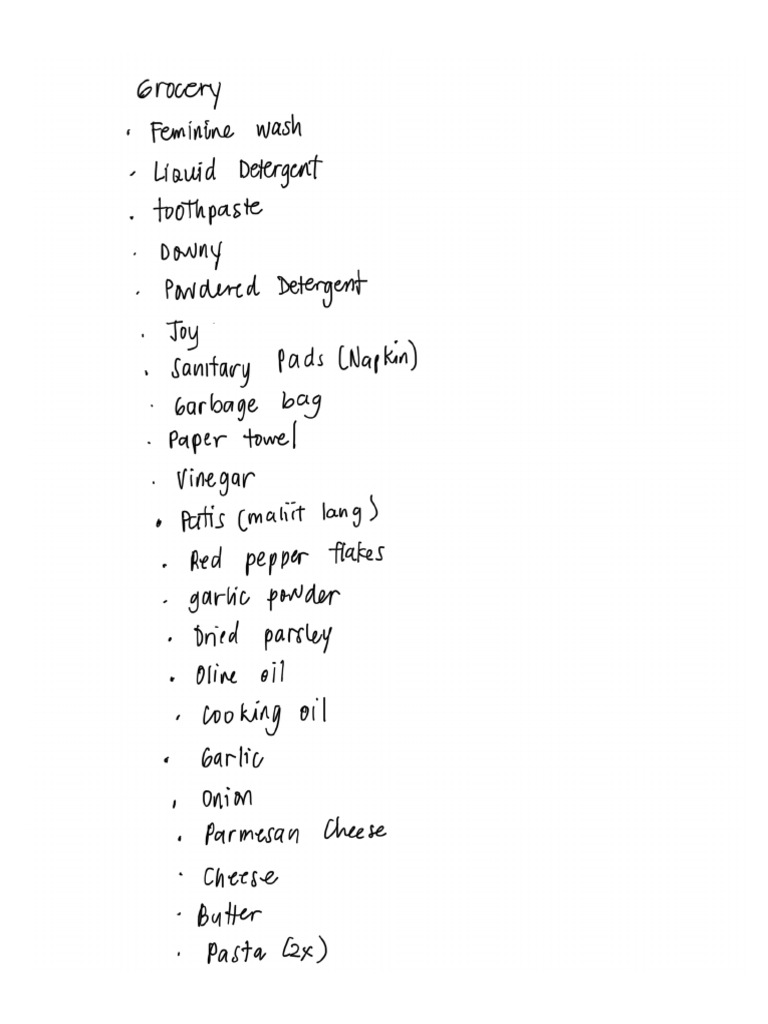 Grocery
· Feminine wash
· Liquid Detergent
· toothpaste
· Downy
· Powdered Detergent
· Joy
· Sanitary Pads (Napkin)
· Garbage bag
· Paper towel
· Vinegar
· Patis (maliit lang)
· Red pepper flakes
· garlic powder
· Dried parsley
· Olive oil
· Cooking oil
· Garlic
· Onion
· Parmesan Cheese
· Cheese
· Butter
· Pasta (2x)